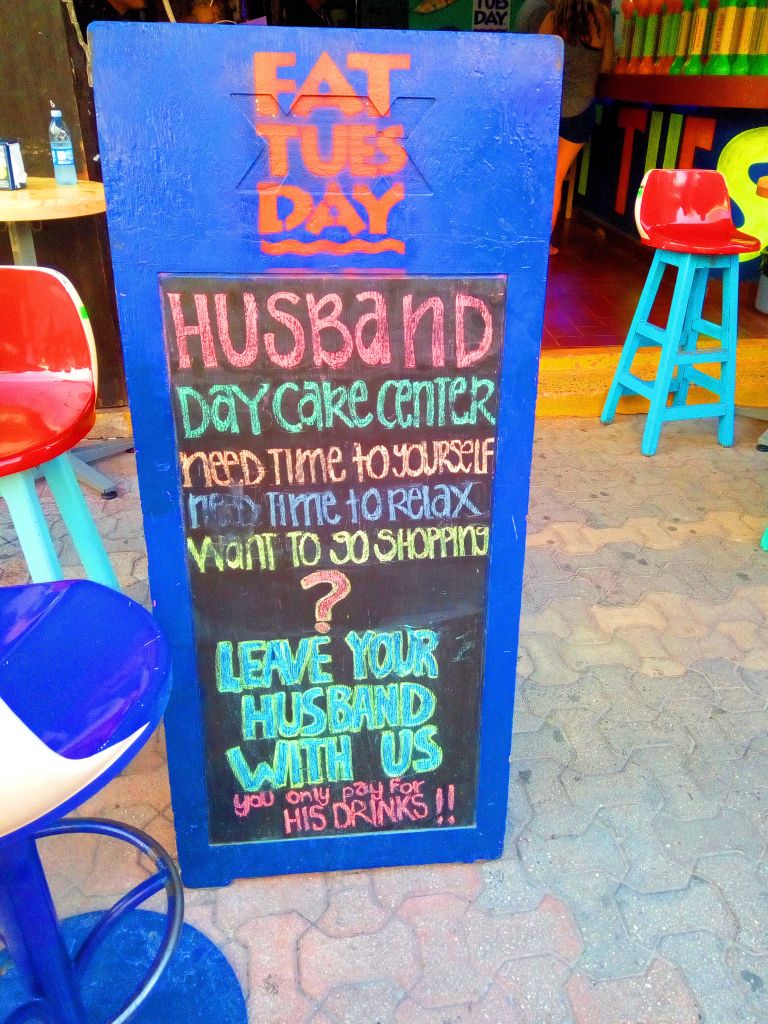 TUES
DAY
FAT
TUES
DAY
HUSBAND
DAY CARE CENTER
NEED TIME to YOURSELF
NEED TIME to RELAX
WANT TO GO SHOPPING
?
LEAVE YOUR
HUSBAND
WITH US
you only pay for
HIS DRINKS!!